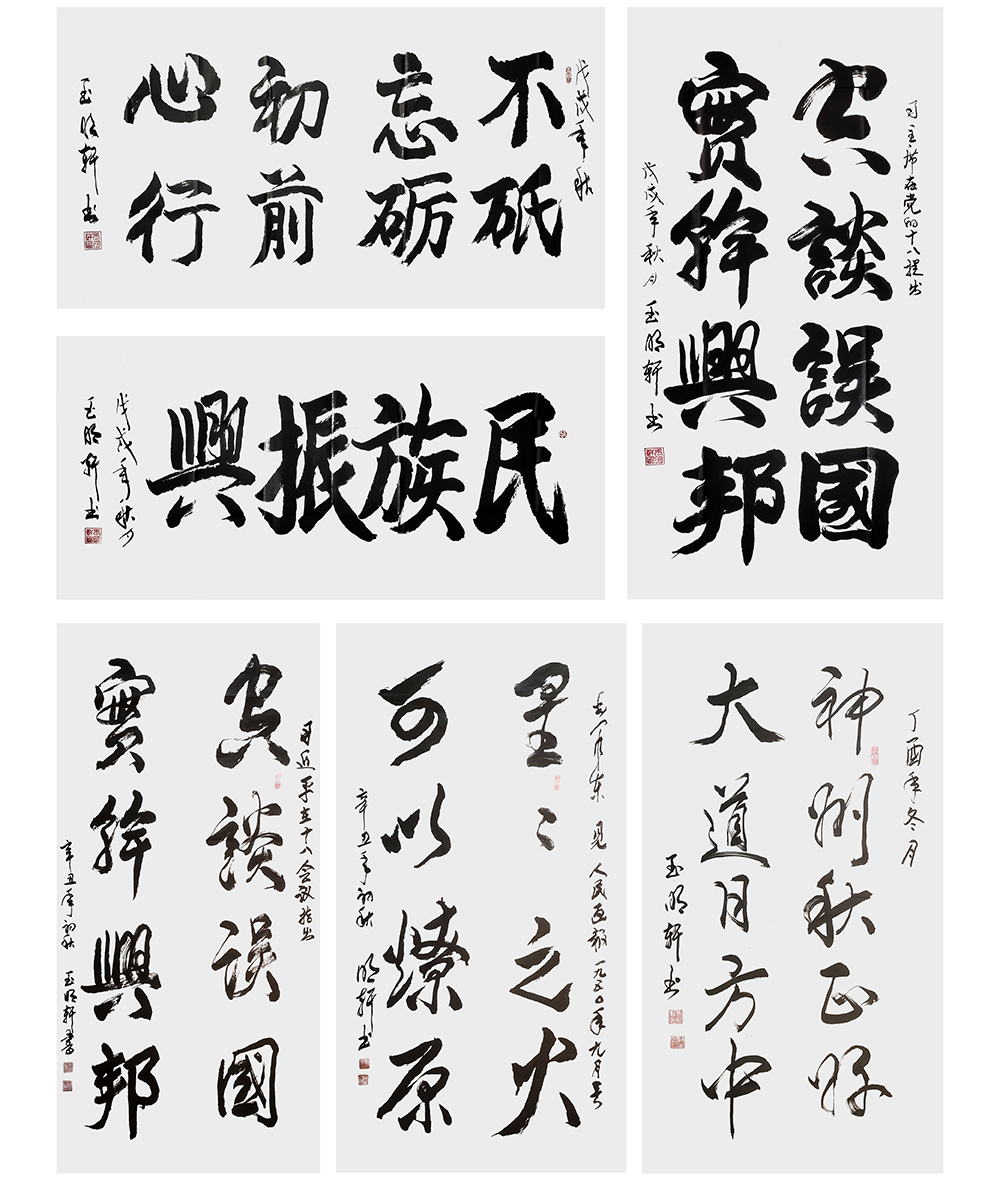 戊戌年秋
不砥
忘砺
初前
心行
玉明轩书
主席在党的十八提出
空談誤國
實幹興邦
戊戌年秋月 玉明轩书
民族振興
戊戌年秋月
玉明轩书
习近平在十八会议指出
空談误國
實幹興邦
辛丑年初秋 玉明轩書
见人民画报一九五〇年九月号
星〻之火
可以燎原
辛丑年初秋 明轩书
丁酉年冬月
神州秋正好
大道月方中
玉明轩书